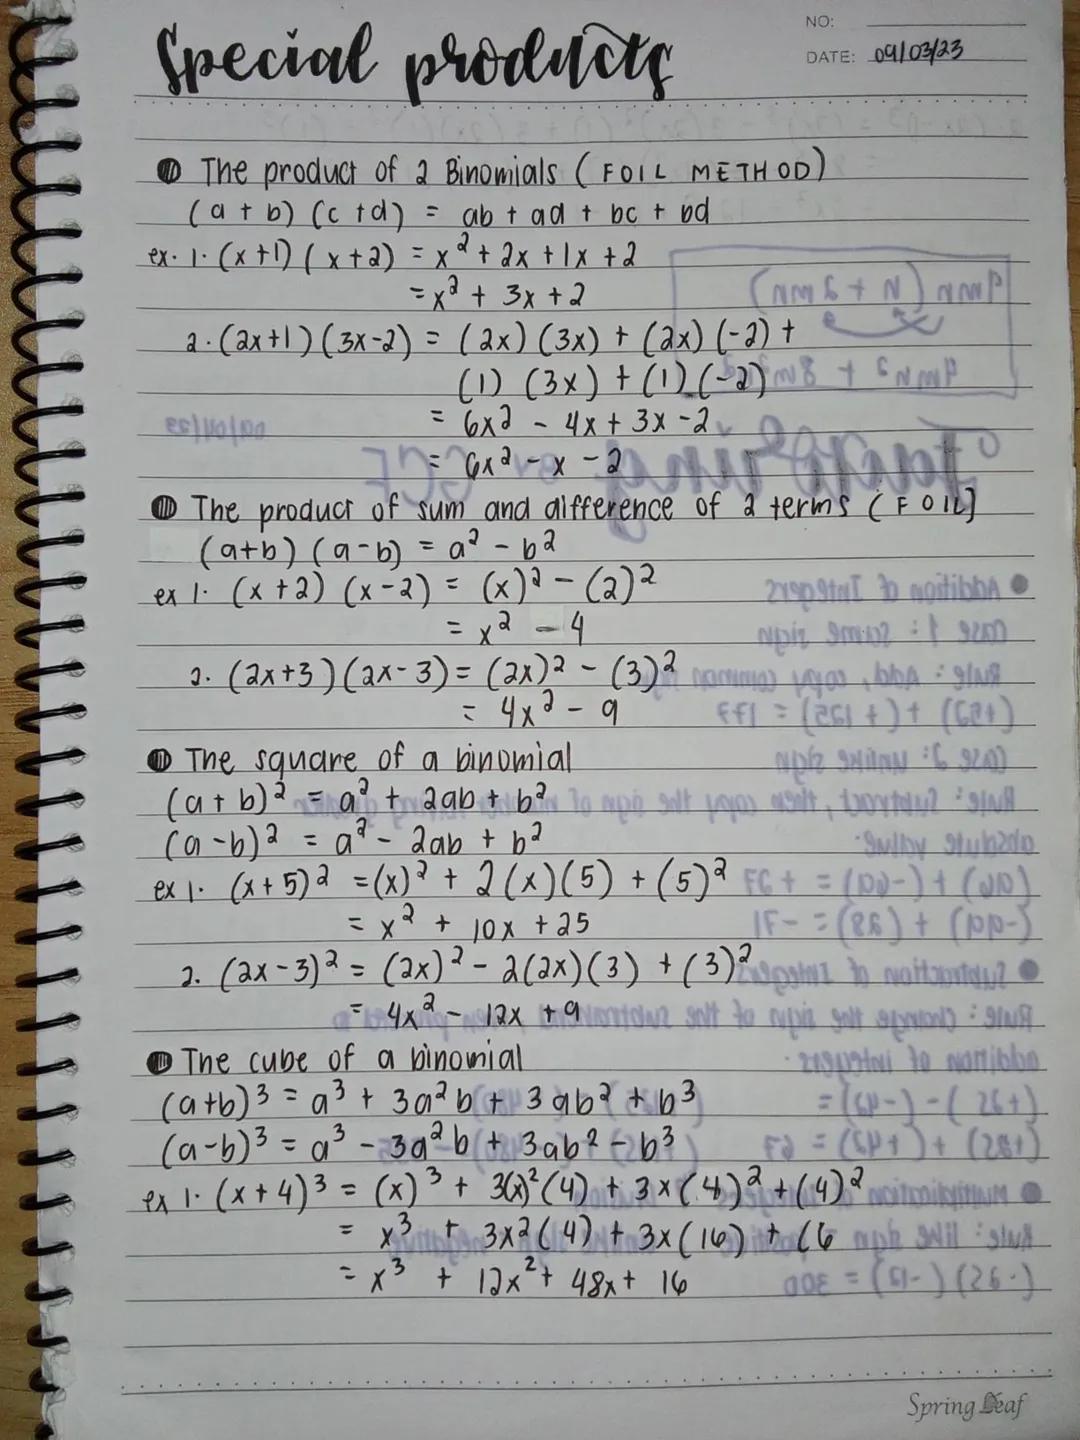 Special products
NO:
DATE: 09/03/23
The product of 2 Binomials (FOIL METHOD)
(a + b) (c + d) = ab + ad + bc + bd
ex. 1. (x+1) (x+2) = x² + 2x + 1x + 2
= x² + 3x + 2
2. (2x+1) (3x-2) = (2x) (3x) + (2x) (-2) +
(1) (3x) + (1) (-2)
= 6x² - 4x + 3x - 2
= 6x² - x - 2
The product of sum and difference of 2 terms (FOIL]
(a+b) (a-b) = a² - b²
ex 1. (x+2) (x-2) = (x)² - (2)²
= x² - 4
2. (2x+3) (2x-3) = (2x)² - (3)²
= 4x² - 9
The square of a binomial
(a + b)² = a² + 2ab + b²
(a - b)² = a² - 2ab + b²
ex 1. (x+5)² = (x)² + 2(x)(5) + (5)²
= x² + 10x + 25
2. (2x-3)² = (2x)² - 2(2x)(3) + (3)²
= 4x² - 12x + 9
The cube of a binomial
(a+b)³ = a³ + 3a²b + 3ab² + b³
(a-b)³ = a³ - 3a²b + 3ab² - b³
ex 1. (x+4)³ = (x)³ + 3(x)²(4) + 3x(4)² + (4)²
= x³ + 3x2(4) + 3x(16) + (6
= x³ + 12x² + 48x + 16
Spring Leaf